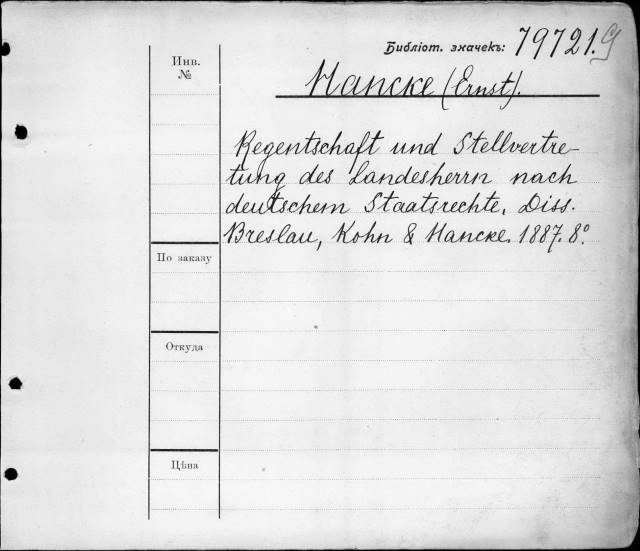 Библіот. значекъ: 79721.
Инв.
№
Hancke (Ernst).
Regentschaft und Stellvertre-
tung des Landesherrn nach
deutschem Staatsrechte. Diss.
Breslau, Kohn & Hancke. 1887. 8º
По заказу
Откуда
Цѣна